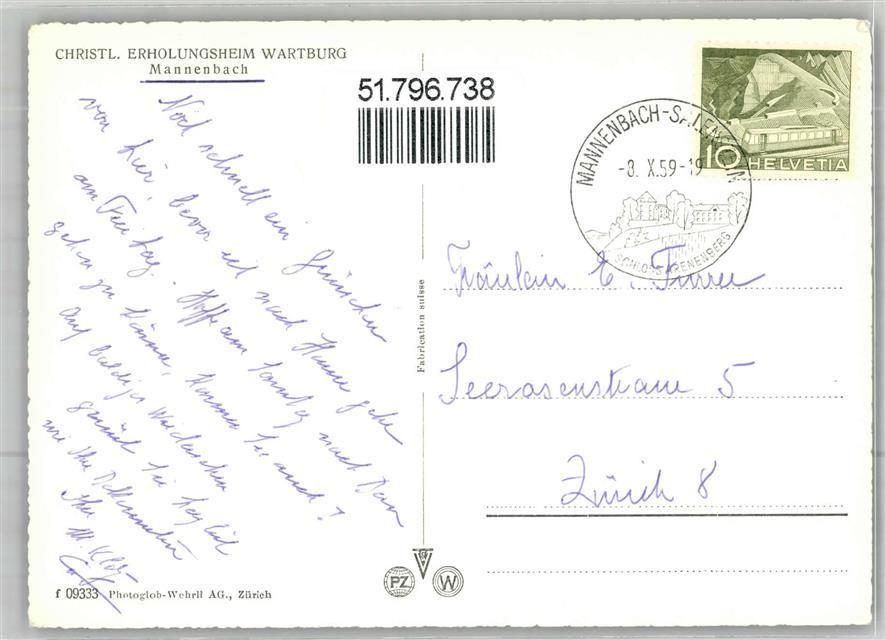 CHRISTL. ERHOLUNGSHEIM WARTBURG
Mannenbach
51.796.738
10 HELVETIA
MANNENBACH-SALENSTEIN
-8. X. 59-19
SCHLOSS ARENENBERG
Noch schnell ein Grüsschen
von hier, bevor ich nach Hause gehe
am Freitag. Hoffe am Sonntag nach
gehen zu können. Kommen Sie auch?
Auf baldiges Wiedersehen
grüsst Sie herzlich
wie Ihre
Ihr M.
Fräulein E. Furrer
Seerosenstrasse 5
Zürich 8
Fabrication suisse
PZ
W
f 09333 Photoglob-Wehrli AG., Zürich